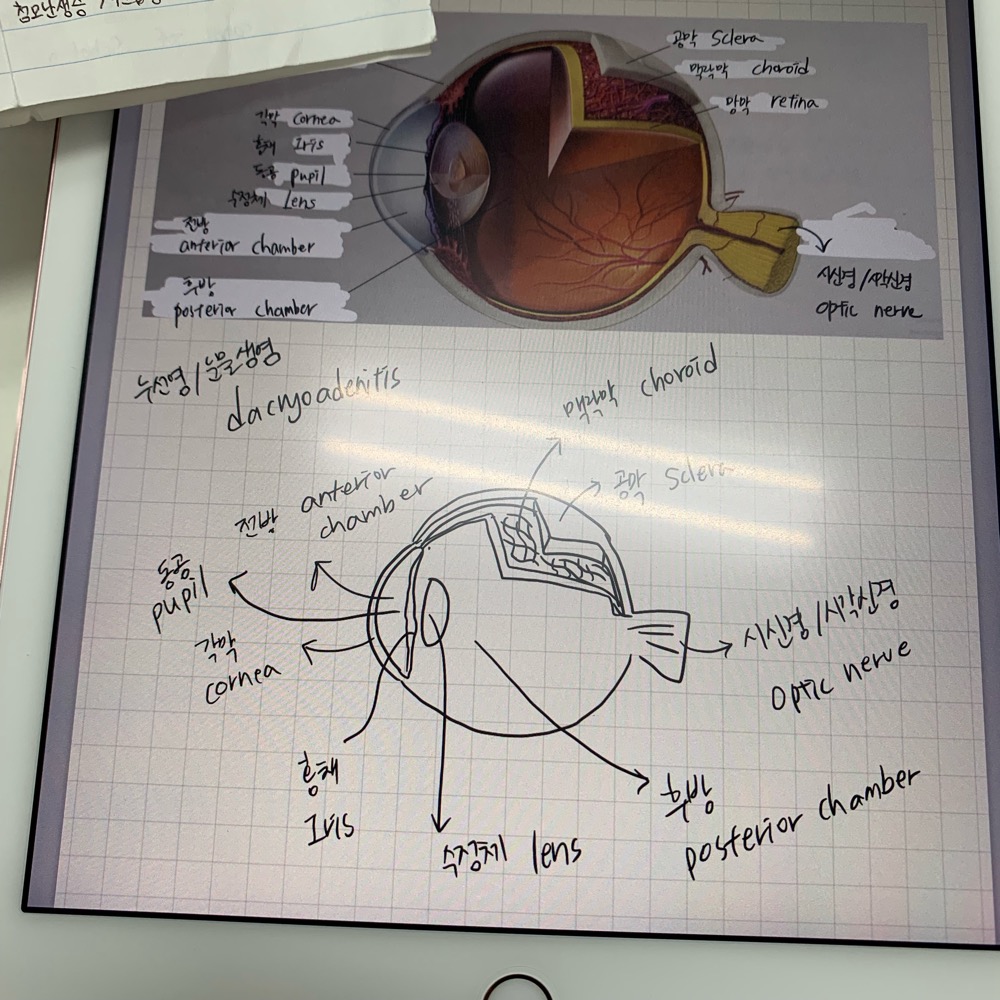 공막 Sclera
맥락막 choroid
망막 retina
각막 cornea
홍채 Iris
동공 pupil
수정체 Lens
전방
anterior chamber
후방
posterior chamber
시신경/시각신경
optic nerve
누선염/눈물샘염
dacryoadenitis
맥락막 choroid
공막 Sclera
전방 anterior
chamber
동공
pupil
각막
cornea
시신경/시각신경
optic nerve
홍채
Iris
수정체 lens
후방
posterior chamber